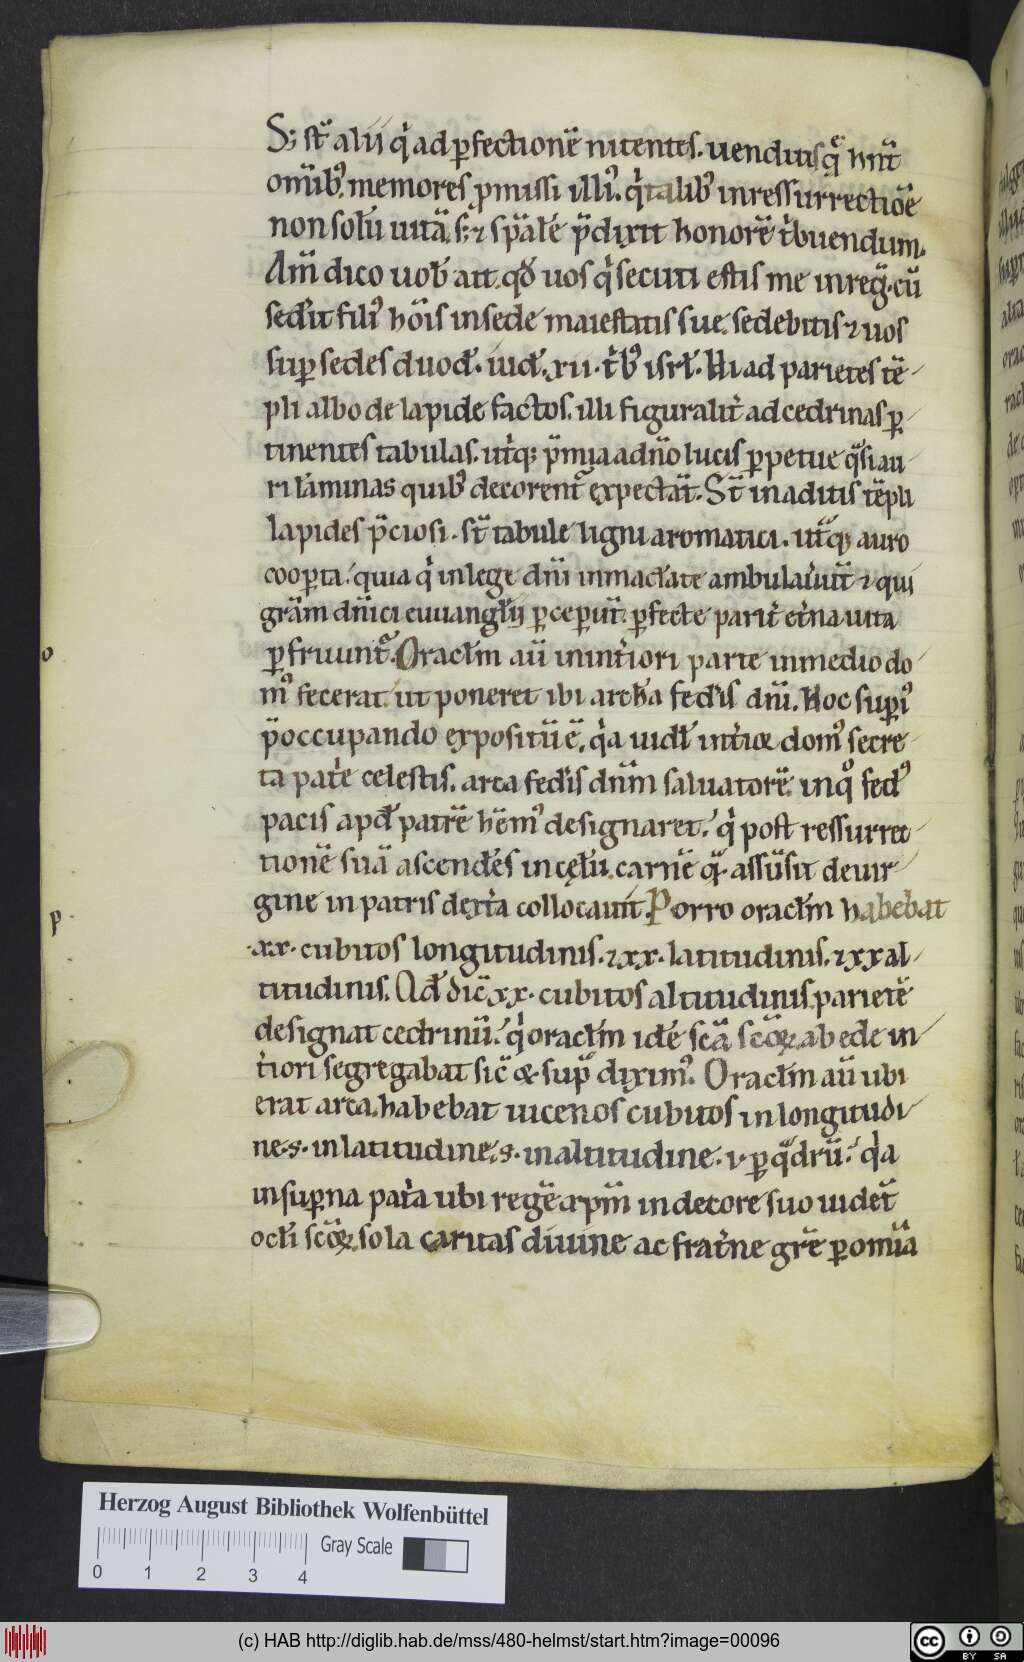 S; st̄ alii q̇ ad ꝑfectionē nitentes. uenditisq̄ hn̄t
om̄ib9 memores ꝓmissi illi9. q̇ talib9 in ressurrectiōe
non solū uitā. s; ⁊ sp̄alē p̄dixit honorē ṫbuendum.
Am̄ dico uob̄ ait. qđ uos q̇ secuti estis me in reḡ. cū
sedit̄ fili9 hōis in sede maiestatis sue. sedebitis ⁊ uos
suꝑ sedes duod̄. iud̄. xii. ṫb9 isrł. Hi ad parietes tē
pli albo de lapide factos. illi figuralit̄ ad cedrinas ꝑ
tinentes tabulas. uṫq; p̄mia a dn̄o lucis ꝑpetue q̄si au
ri laminas quib9 decorent̄ expectāt. St̄ in aditis tēpli
lapides p̄ciosi. st̄ tabule ligni aromatici. ut̄q; auro
cooꝑta. quia q̇ in lege dn̄i inmacl̄ate ambulauer̄t ⁊ qui
grām dn̄ici euuangl̄ij ꝑceper̄t. ꝑfecte parit̄ et̄na uita
ꝑfruunt̄. Oracl̄m aū in int̄iori parte in medio do
m9 fecerat ut poneret ibi archa fed̄is dn̄i. Hoc supi9
p̄occupando expositū ē. q̇a uidl̄ int̄ior dom9 secre
ta pat̄e celestis. arca fed̄is dn̄m saluatorē. in q̊ fed9
pacis apd̄ patrē hēm9 designaret. q̇ post ressurrec
tionē suā ascendēs in cęlū. carnē q̄ assūsit de uir
gine in patris dext̄a collocauit. Porro oracl̄m habebat
.xx. cubitos longitudinis. ⁊ xx. latitudinis. ⁊ xx al
titudinis. Ad̄ dic̄ xx. cubitos altitudinis. parietē
designat cedrinū. q̇ oracl̄m idē scā scōꝝ ab ede in
t̄iori segregabat sic̄ ⁊ sup̄ dixim9. Oracl̄m aū ubi
erat arca. habebat uicenos cubitos in longitudi
ne. s. in latitudine. s. in altitudine. ꝑ q̄drū. q̇a
in suꝑna pat̄a ubi regē xp̄m in decore suo uidet̄
ocl̄i scōꝝ. sola caritas diuine ac frat̄ne grē ꝑ om̄ia
o
p
Herzog August Bibliothek Wolfenbüttel
Gray Scale
0 1 2 3 4
(c) HAB http://diglib.hab.de/mss/480-helmst/start.htm?image=00096
cc BY SA